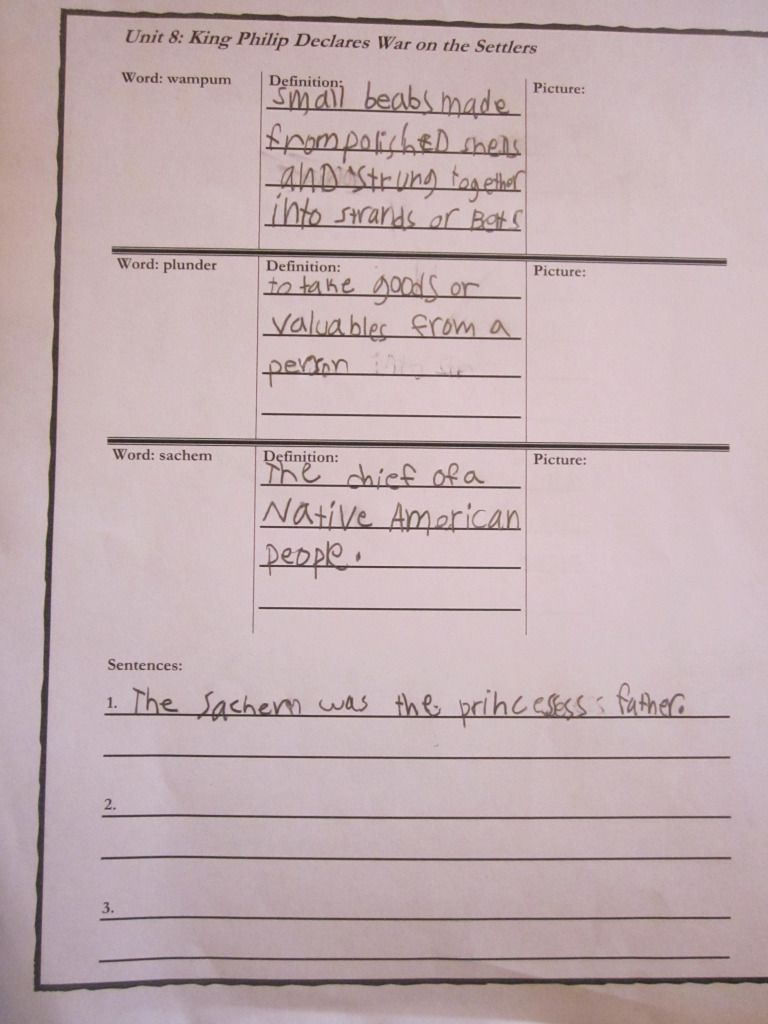 Unit 8: King Philip Declares War on the Settlers
Word: wampum
Definition:
Picture:
small beabs made
from polishED shells
anD strung together
into strands or Belts
Word: plunder
Definition:
Picture:
to take goods or
valuables from a
person
Word: sachem
Definition:
Picture:
The chief of a
Native American
people.
Sentences:
1. The Sachem was the princesess father.
2.
3.